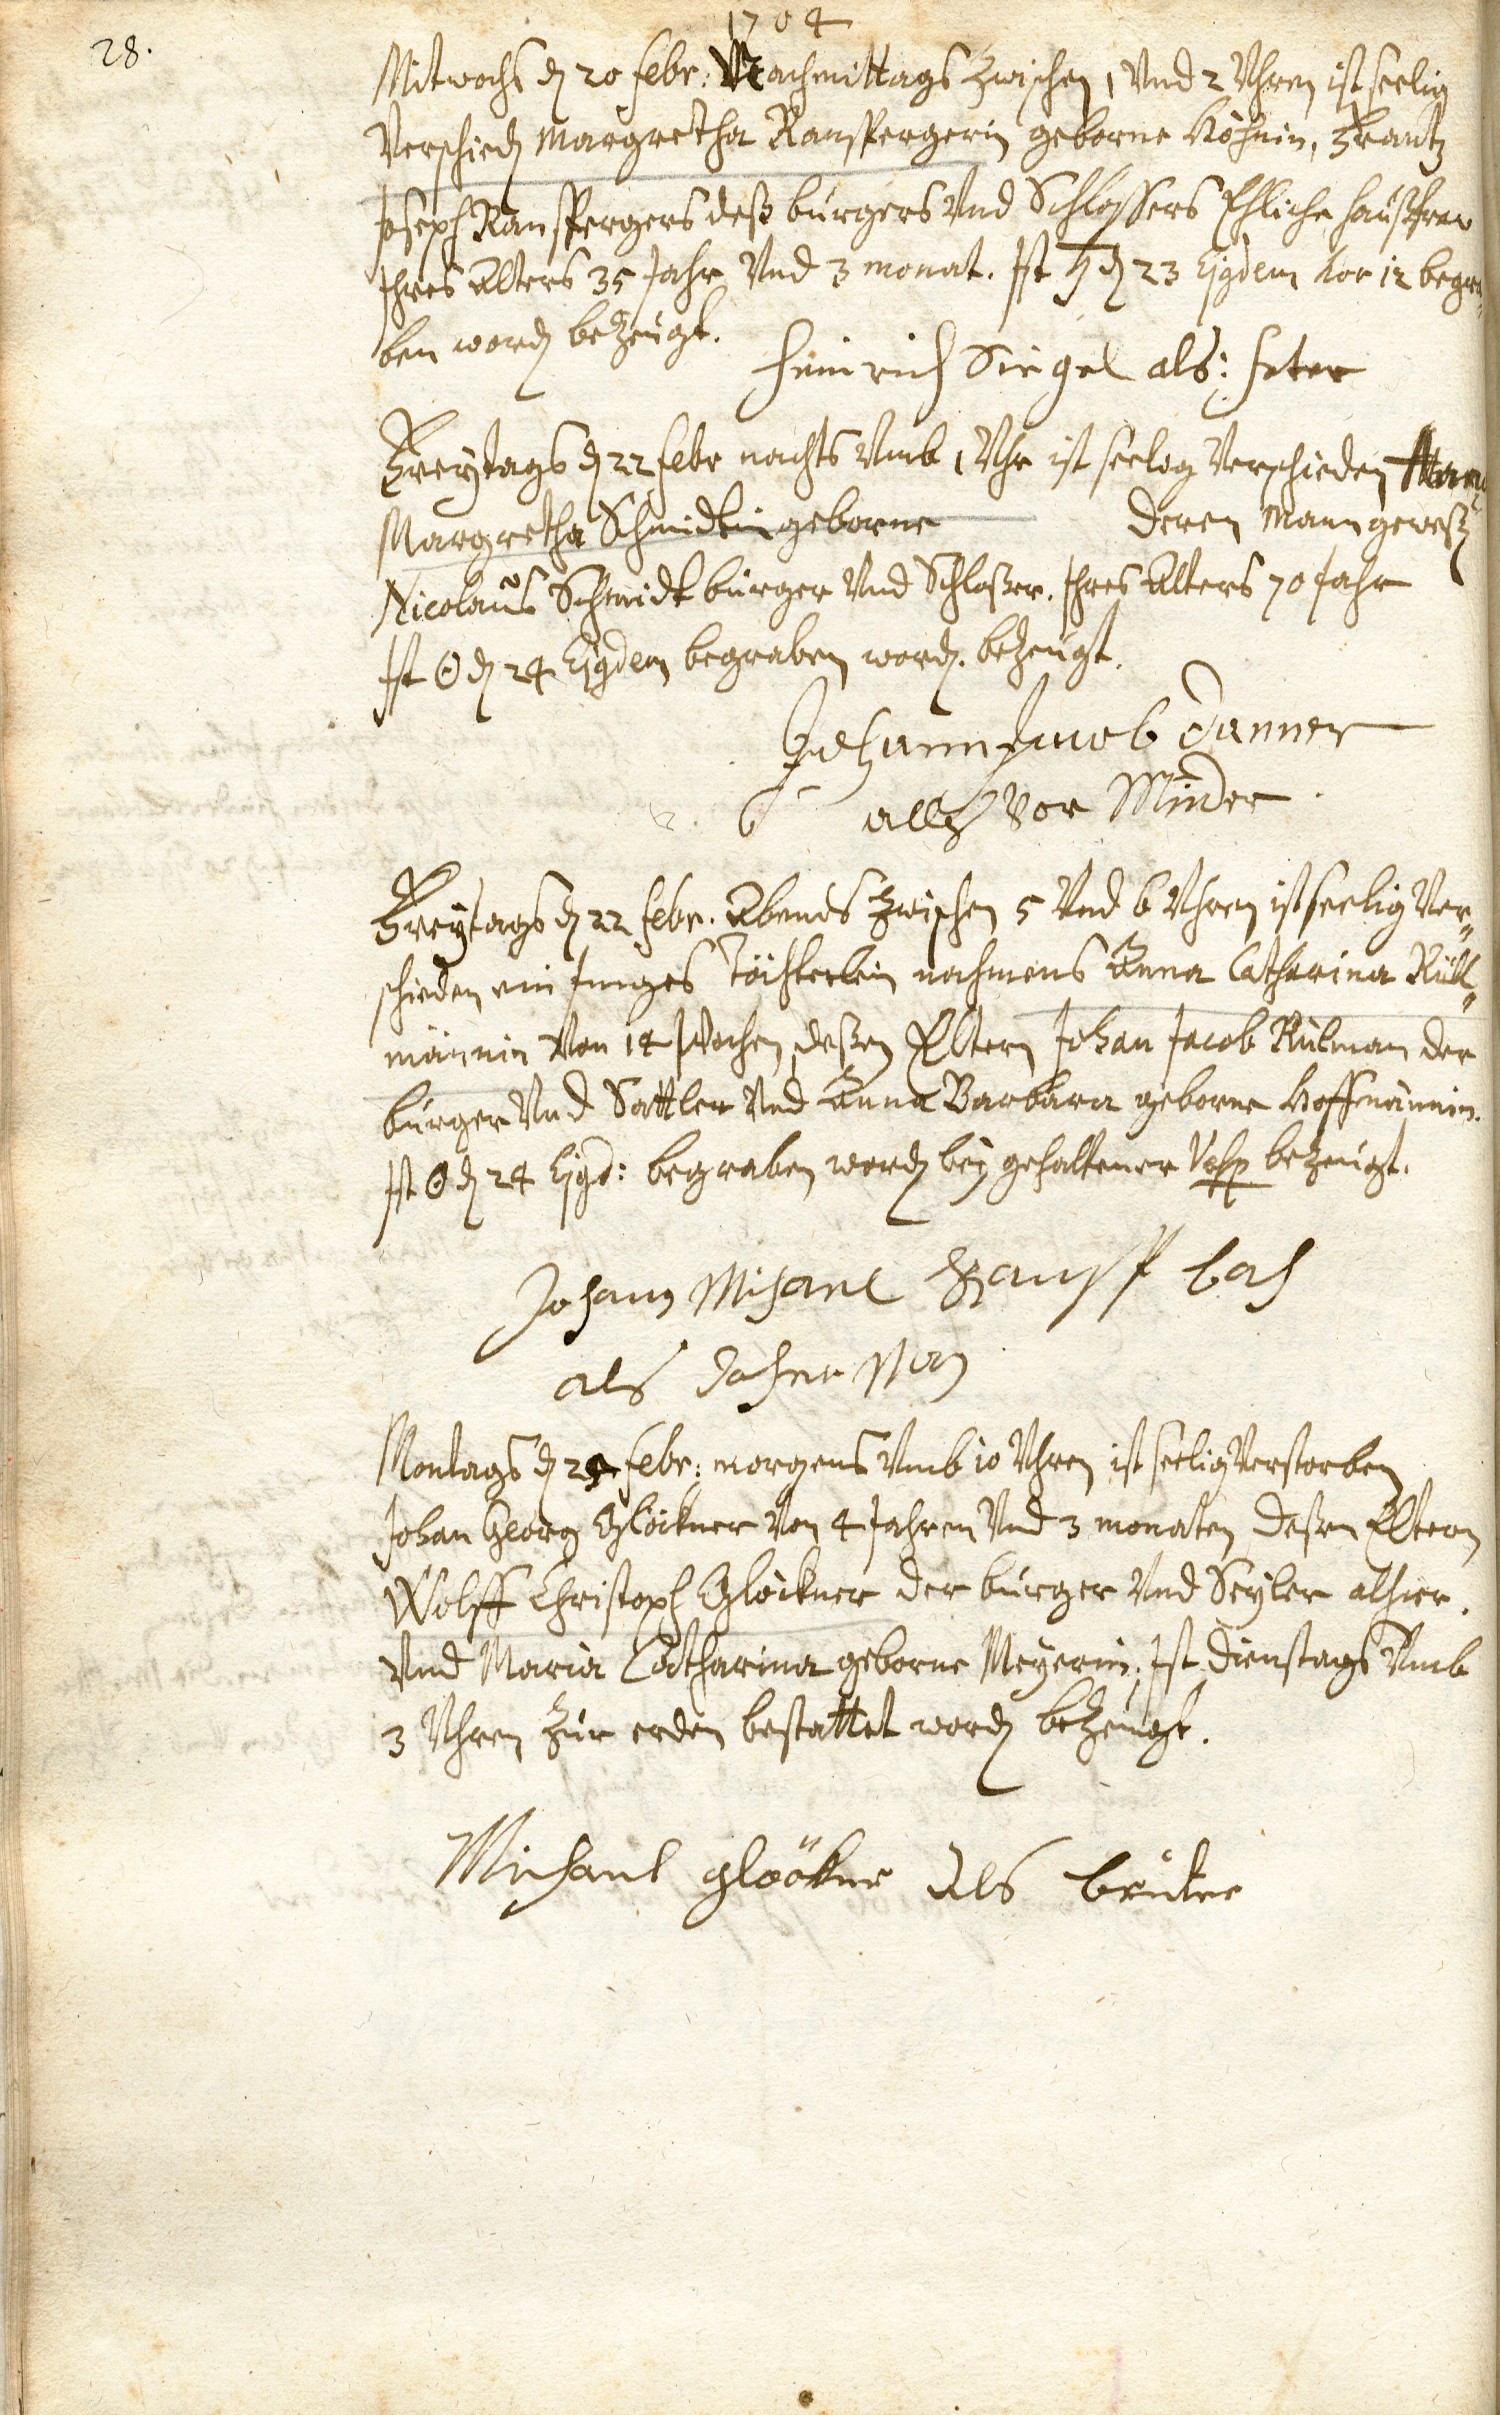 1704
28.
Mitwochs d 20 febr: Nachmittags Zwischen 1 Vnd 2 Vhren ist seelig
Verschied Margretha Ranspergerin geborne Köhnin, Frantz
Joseph Ranspergers deß burgers Vnd Schlossers Ehliche haußfrau
Ihres Alters 35 Jahr Vnd 3 monat. Ist ♄ d 23 Ejgdem hor 12 begra
ben word bezeugt.
Heinrich Siegel als: Fater
Freytags d 22 febr nachts Vmb 1 Vhr ist seelig Verschieden
Margretha Schmidtin geborne deren Mann geweßt
Nicolaus Schmidt burger Vnd Schloßer. Ihres Alters 70 Jahr
Ist ☉ d 24 Ejgdem begraben word. bezeugt.
Johann Jacob Danner
alls Vor Minder
Freytags d 22 febr. Abends Zwischen 5 Vnd 6 Vhren ist seelig Ver„
schieden ein Junges Töchterlein nahmens Anna Catharina Rüll„
männin Von 14 Wochen, deßen Eltern Johan Jacob Rülman der
burger Vnd Sattler Vnd Anna Barbara geborne Hoffmännin.
Ist ☉ d 24 Ejgd: begraben word bey gehaltener Vesp bezeugt.
Johann Michael bach
als
Montags d 25 febr: morgens Vmb 10 Vhren ist seelig Verstorben
Johan Georg Glöckner Von 4 Jahren Vnd 3 monaten deßen Eltern
Wolff Christoph Glöckner der burger Vnd Seyler alhier.
Vnd Maria Catharina geborne Meyerin, Ist dienstags Vmb
3 Vhren Zur erden bestattet word bezeugt.
Michael glöökner Als bruter